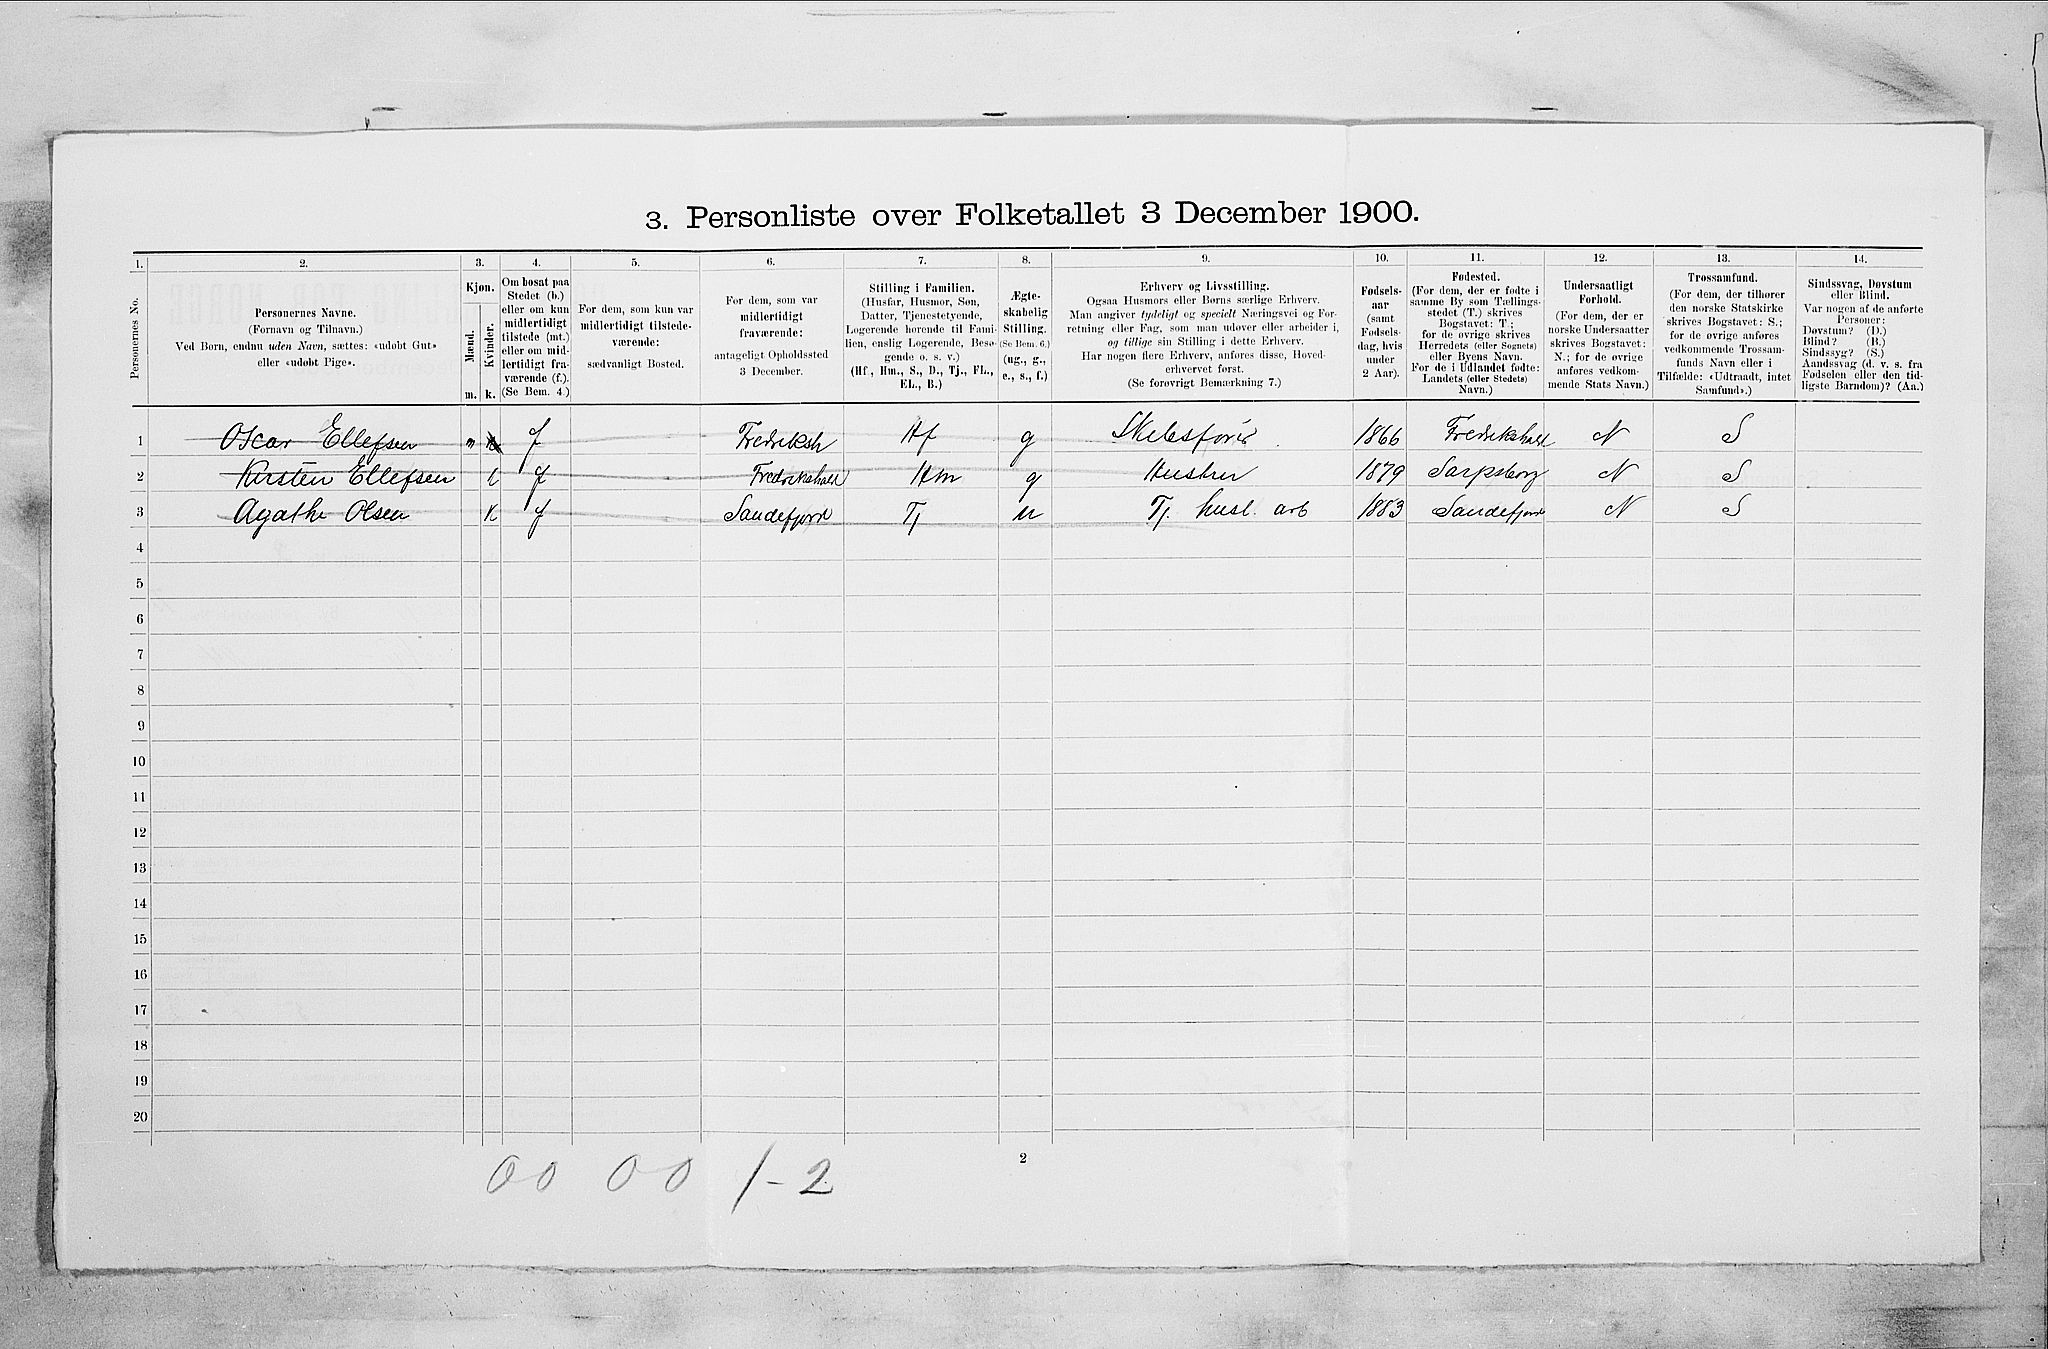 3. Personliste over Folketallet 3 December 1900.
1. 2. 3. 4. 5. 6. 7. 8. 9. 10. 11. 12. 13. 14.
Personernes No.
Personernes Navne.
(Fornavn og Tilnavn.)
Ved Børn, endnu uden Navn, sættes: «udøbt Gut»
eller «udøbt Pige».
Kjøn.
Mænd.
Kvinder.
m. k.
Om bosat paa
Stedet (b.)
eller om kun
midlertidigt
tilstede (mt.)
eller om mid-
lertidigt fra-
værende (f.).
(Se Bem. 4.)
For dem, som kun var
midlertidigt tilstede-
værende:
sædvanligt Bosted.
For dem, som var
midlertidigt
fraværende:
antageligt Opholdssted
3 December.
Stilling i Familien.
(Husfar, Husmor, Søn,
Datter, Tjenestetyende,
Logerende hørende til Fami-
lien, enslig Logerende, Besø-
gende o. s. v.)
(Hf., Hm., S., D., Tj., FL.,
EL., B.)
Ægte-
skabelig
Stilling.
(Se Bem. 6.)
(ug., g.,
e., s., f.)
Erhverv og Livsstilling.
Ogsaa Husmors eller Børns særlige Erhverv.
Man angiver tydeligt og specielt Næringsvei og For-
retning eller Fag, som man udøver eller arbeider i,
og tillige sin Stilling i dette Erhverv.
Har nogen flere Erhverv, anføres disse, Hoved-
erhvervet først.
(Se forøvrigt Bemærkning 7.)
Fødsels-
aar
(samt
Fødsels-
dag, hvis
under
2 Aar).
Fødested.
(For dem, der er fødte i
samme By som Tællings-
stedet (T.) skrives
Bogstavet: T.;
for de øvrige skrives
Herredets (eller Sognets)
eller Byens Navn.
For de i Udlandet fødte:
Landets (eller Stedets)
Navn.)
Undersaatligt
Forhold.
(For dem, der er
norske Undersaatter
skrives Bogstavet:
N.; for de øvrige
anføres vedkom-
mende Stats Navn.)
Trossamfund.
(For dem, der tilhører
den norske Statskirke
skrives Bogstavet: S.;
for de øvrige anføres
vedkommende Trossam-
funds Navn eller i
Tilfælde: «Udtraadt, intet
Samfund».)
Sindssvag, Døvstum
eller Blind.
Var nogen af de anførte
Personer:
Døvstum? (D.)
Blind? (B.)
Sindssyg? (S.)
Aandssvag (d. v. s. fra
Fødselen eller den tid-
ligste Barndom)? (Aa.)
1 Oscar Ellefsen m f Fredriksh Hf g 1866 Fredrikshald N S
2 Kirsten Ellefsen k f Fredrikshald Hm g Hustru 1879 Sarpsborg N S
3 Agathe Olsen k f Sandefjord Tj u Tj. husl. arb 1883 Sandefjord N S
4
5
6
7
8
9
10
11
12
13
14
15
16
17
18
19
20
2
00 00 1-2